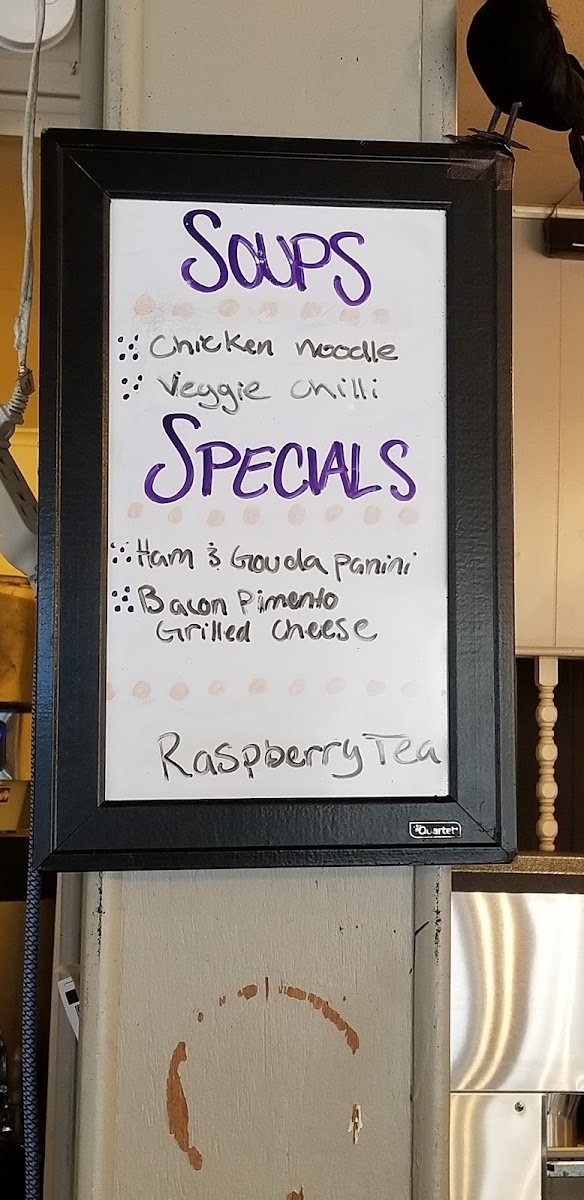 SOUPS
Chicken noodle
Veggie chilli
SPECIALS
Ham & Gouda panini
Bacon Pimento
Grilled cheese
Raspberry Tea
Quartet